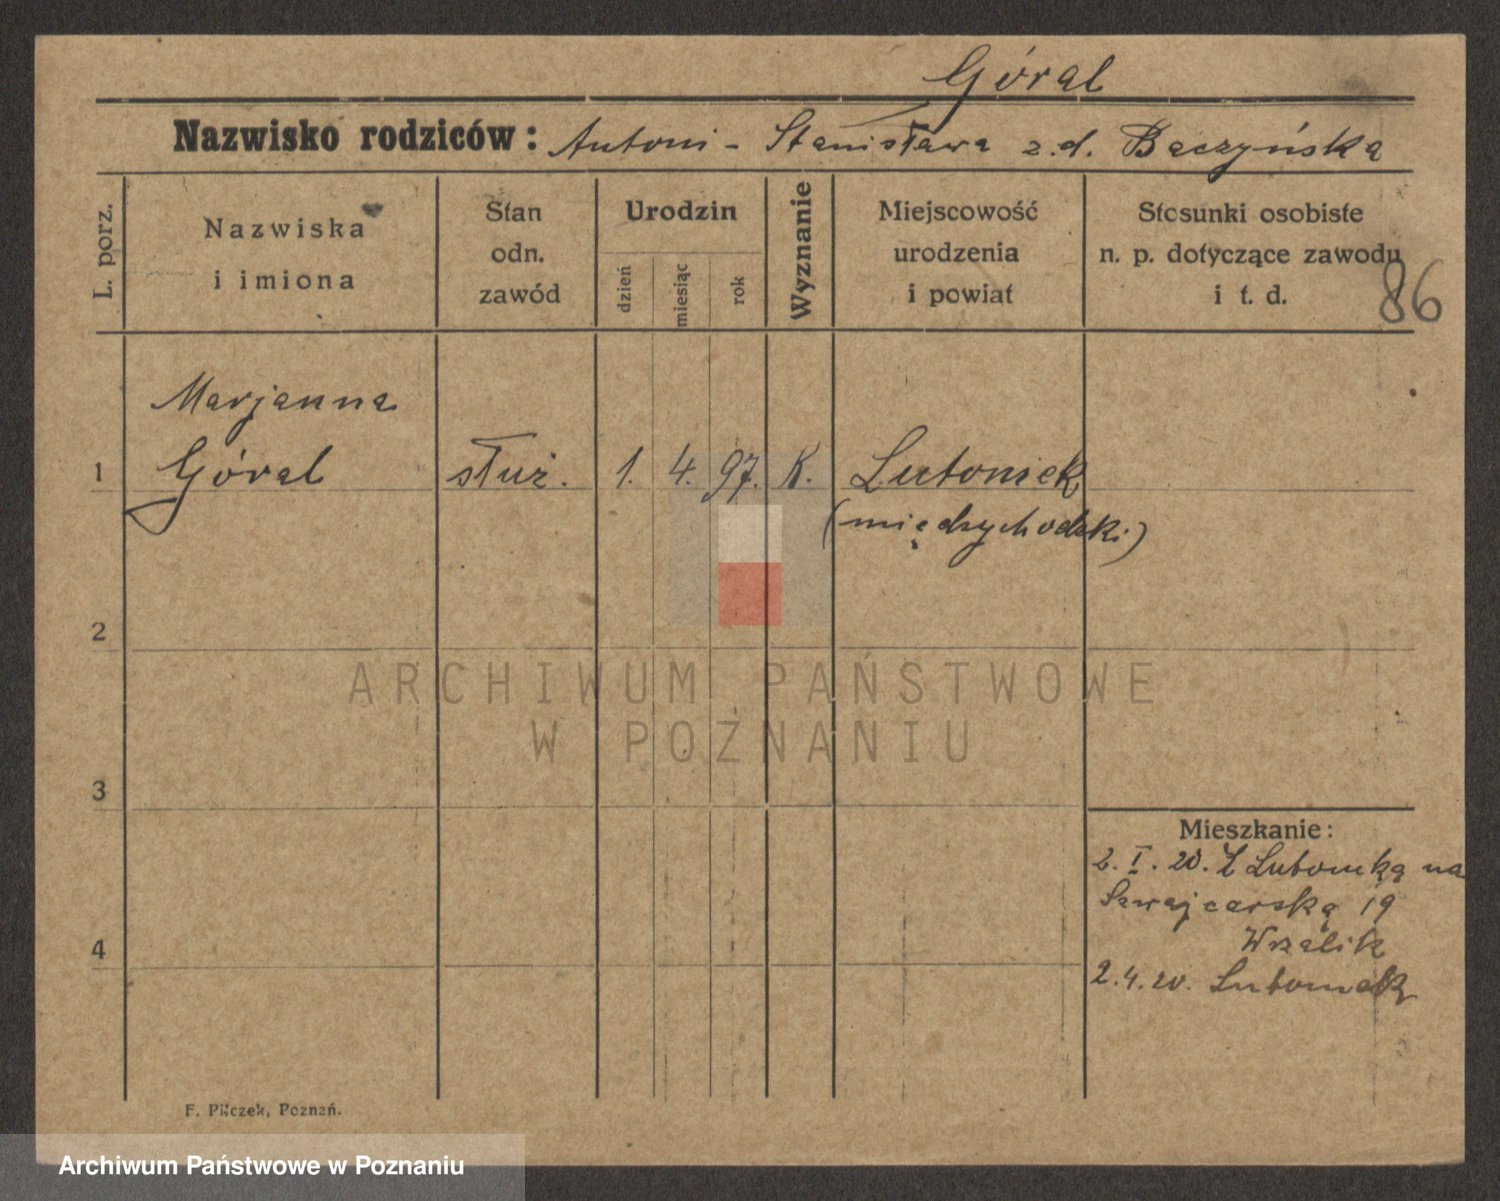 Góral
Nazwisko rodziców: Antoni - Stanisława z.d. Baczyńska
L. porz.
Nazwiska
i imiona
Stan
odn.
zawód
Urodzin
dzień
miesiąc
rok
Wyznanie
Miejscowość
urodzenia
i powiat
Stosunki osobiste
n. p. dotyczące zawodu
i t. d.
86
Marjanna
1 Góral służ. 1. 4. 97. K. Lutomek
(międzychodzki)
2
ARCHIWUM PAŃSTWOWE
W POZNANIU
3
Mieszkanie:
2. I. 20. Z Lutomka na
Szwajcarską 19
4 Wrzalik
2.4.20. Lutomek
F. Pilczek, Poznań.
Archiwum Państwowe w Poznaniu